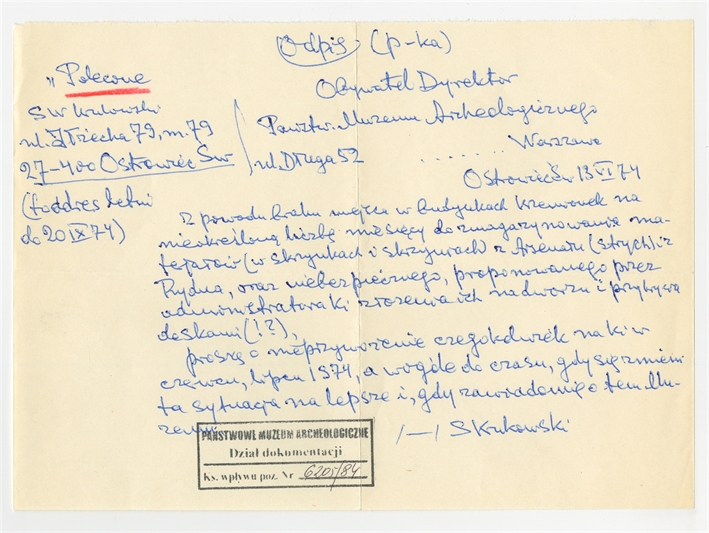 Odpis (p-ka)
„Polecone
Obywatel Dyrektor
S W Krukowski
ul. Iłżecka 79, m. 79
27-400 Ostrowiec Św
(to addres letni
do 20 IX 74)
Państw. Muzeum Archeologicznego
ul. Długa 52 . . . . . . . Warszawa
Ostrowiec Św 13 VI 74
Z powodu braku miejsca w budynkach Krzemionek na
nieokreśloną liczbę miesięcy do zmagazynowania ma-
terjałów (w skrzynkach i skrzyniach) z Arsenału (strych) i z
Rydna, oraz niebezpiecznego, proponowanego przez
administratora ki złożenia ich na dworzu i przykrycia
deskami (!?),
proszę o nieprzywożenie czegokolwiek na ki w
czerwcu, lipcu 1974, a wogóle do czasu, gdy się zmieni
ta sytuacja na lepsze i, gdy zawiadomię o tem Mu-
zeum.
/—/ S Krukowski
PAŃSTWOWE MUZEUM ARCHEOLOGICZNE
Dział dokumentacji
Ks. wpływu poz. Nr 6205/84